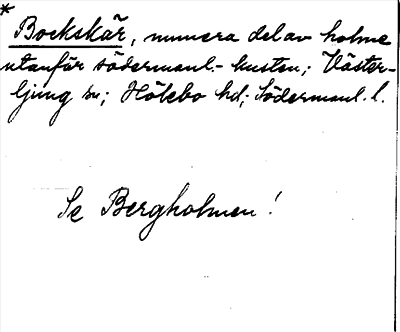 *
Bockskär, numera del av holme
utanför södermanl.-kusten; Väster-
ljung sn; Hölebo hd; Södermanl. l.
Se Bergholmen!